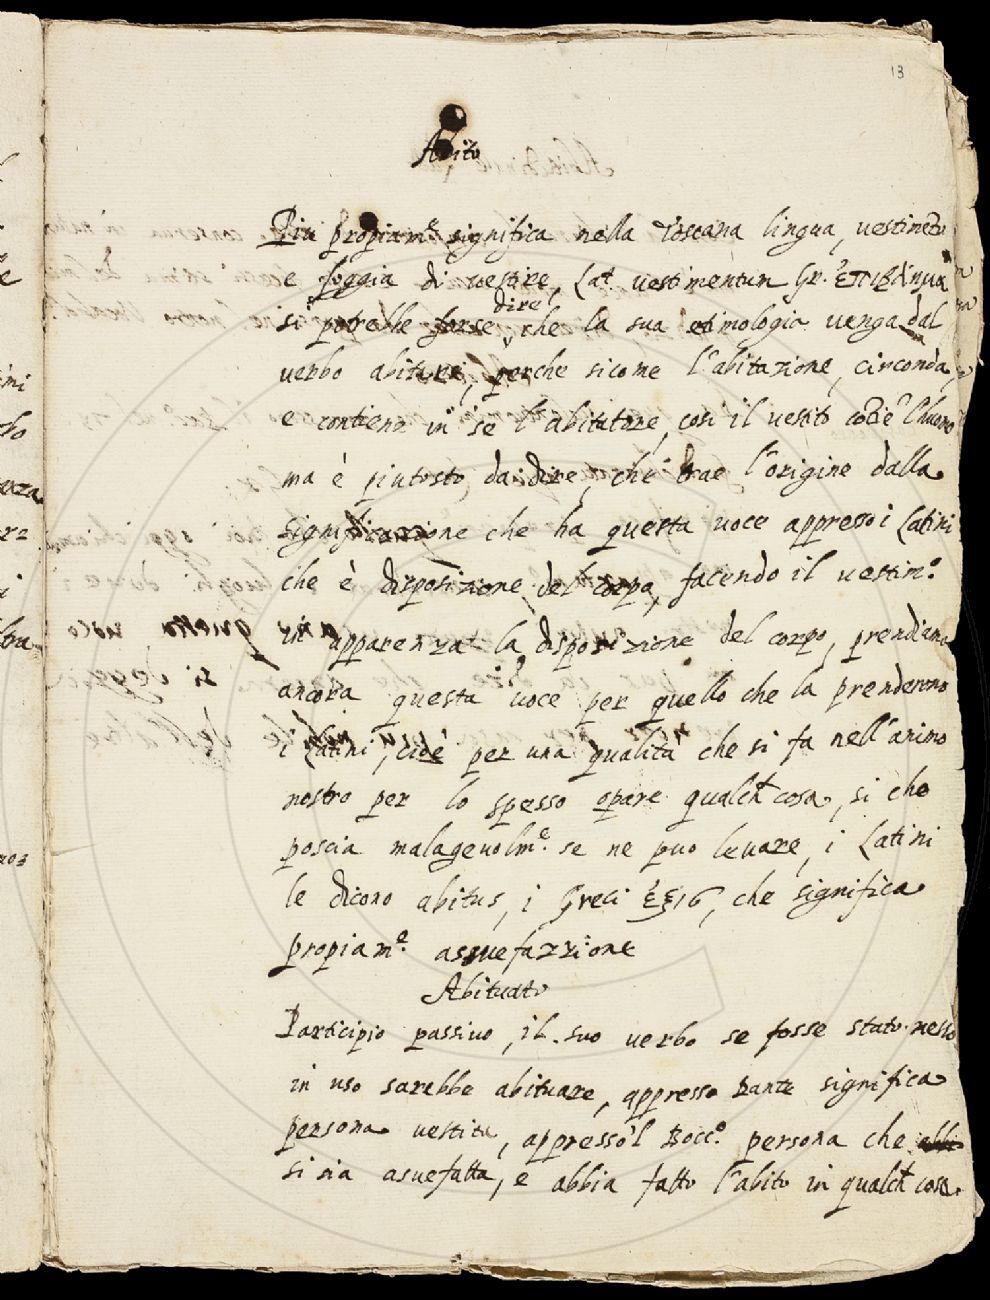 13
Abito
Piu propiam.te significa nella Toscana lingua, vestimẽto
e foggia di vestire, Lat. vestimentum Gr.
dire
si potrebbe forse che la sua etimologia venga dal
verbo abitare, perche sicome l'abitazione, circonda,
e contiene in se l'abitatore, cosi il vestito l'huomo
ma è piutosto, da dire, che trae l'origine dalla
significazione che ha questa uoce appresso i Latini
che è disposizione del corpo, facendo il vestim.o
in apparenza la disposizione del corpo, prendiamo
ancora questa uoce per quello che la prenderono
i Latini, cioè per una qualità che si fa nell'animo
nostro per lo spesso opare qualch cosa, si che
poscia malageuolm.e se ne puo leuare, i Latini
le dicono abitus, i Greci ἕξις, che significa
propiam.e assuefazzione
Abituato
Participio passiuo, il suo uerbo se fosse stato messo
in uso sarebbe abituare, appresso Dante significa
persona uestita, appresso'l Bocc.o persona che
si sia asuefatta, e abbia fatto l'abito in qualch cosa.